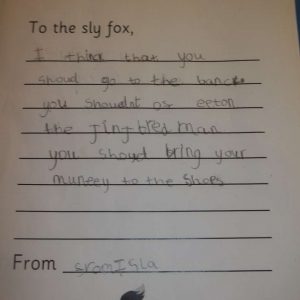 To the sly fox,
I think that you
shoud go to the banck
you shouldnt of eeton
the Jinjbred man
you shoud bring your
muneey to the shops
From sromIsla